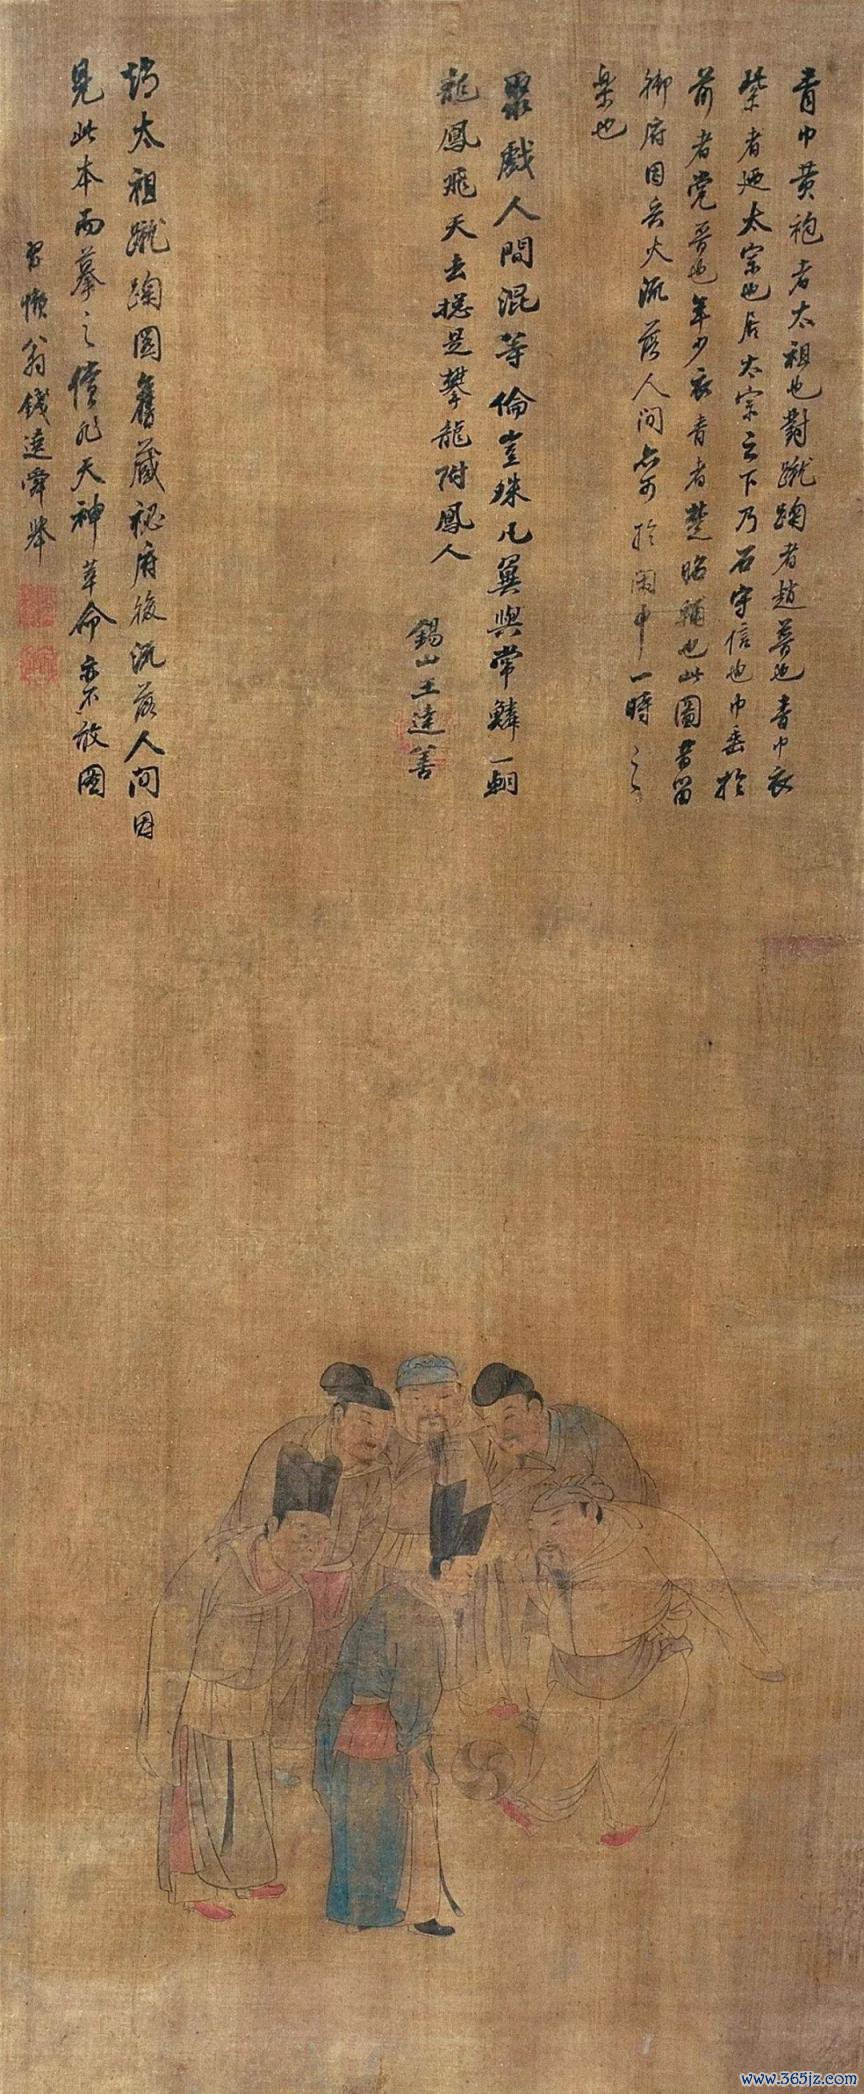 青巾黄袍者太祖也對蹴踘者趙普也青巾衣
紫者廼太宗也居太宗之下乃石守信也巾垂於
前者党晋也年少衣青者楚昭輔也此圖舊留
御府因兵火流落人间亦可於闲中一時之
樂也
聚戲人間混等倫豈殊凡翼與常鱗一朝
龍鳳飛天去總是攀龍附鳳人
錫山王達善
太祖蹴踘圖舊藏秘府後流落人间因
見此本而摹之儻非天神革命亦不敢圖
習懶翁錢選舜举
www.365jz.com